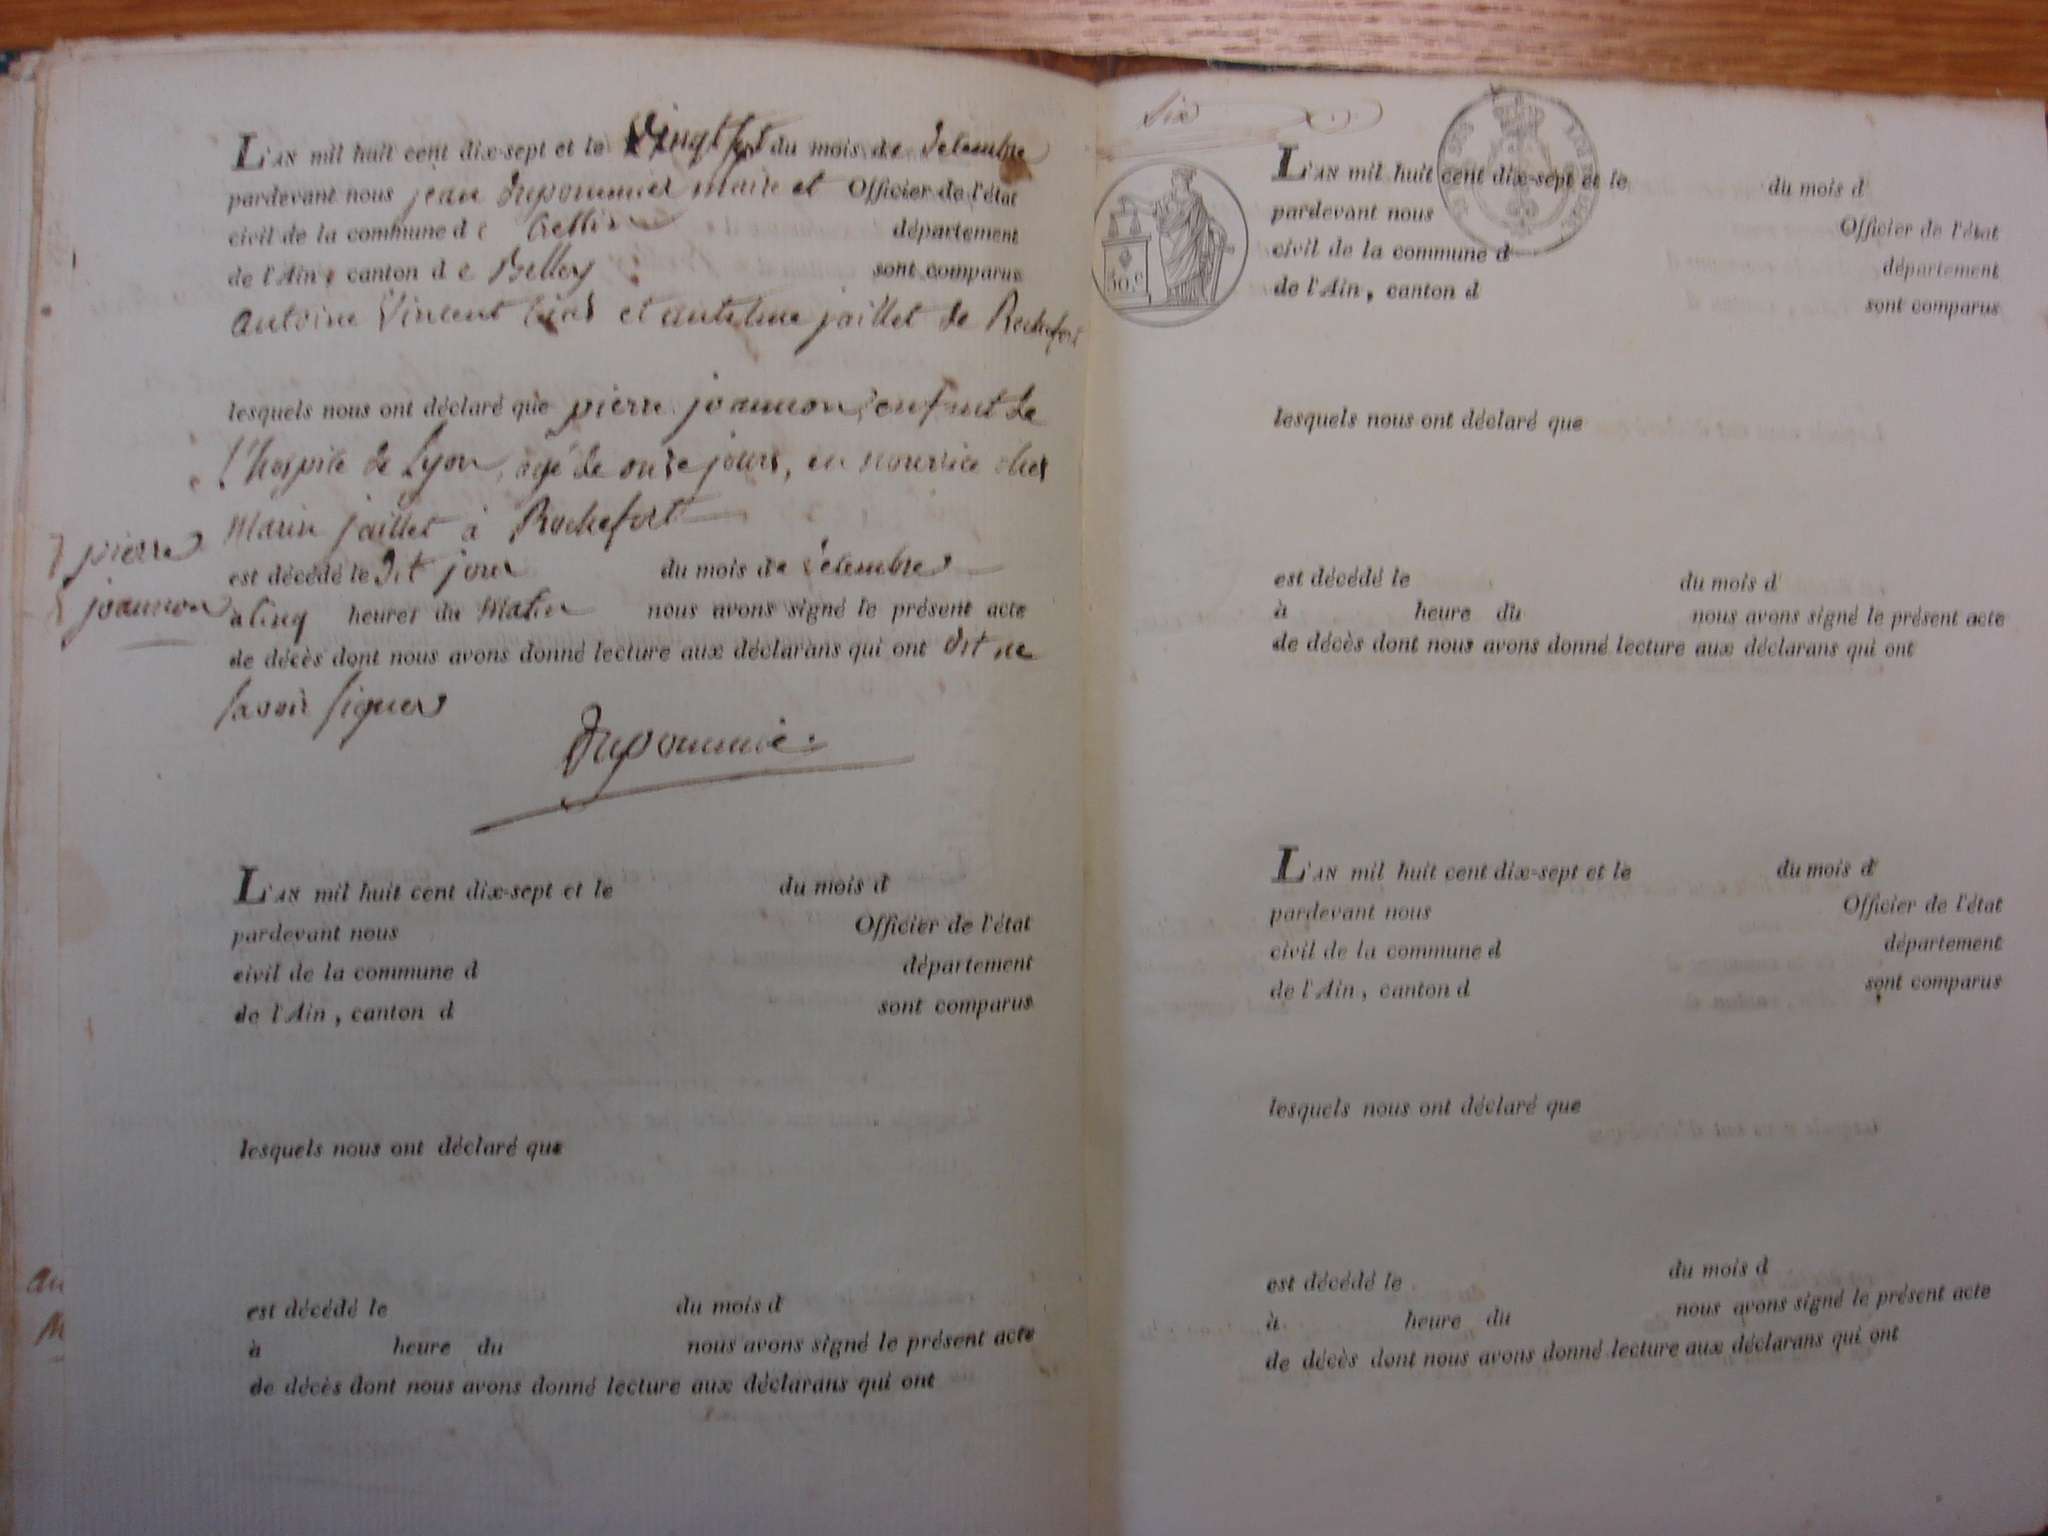 L'AN mil huit cent dix-sept et le vingt sept du mois de decembre
pardevant nous jean dupommier maire et Officier de l'état
civil de la commune de département
de l'Ain, canton de Belley sont comparus
antoine Vincent et antelme jaillet de Rochefort
lesquels nous ont déclaré que pierre joannon, enfant de
l'hospice de Lyon, agé de onze jours, en nourrice chez
Marin jaillet à Rochefort
pierre
joannon
est décédé le dit jour du mois de decembre
a cinq heures du Matin nous avons signé le présent acte
de décès dont nous avons donné lecture aux déclarans qui ont dit ne
savoir signer
dupommier
L'AN mil huit cent dix-sept et le du mois d
pardevant nous Officier de l'état
civil de la commune d département
de l'Ain, canton d sont comparus
lesquels nous ont déclaré que
est décédé le du mois d
à heure du nous avons signé le présent acte
de décès dont nous avons donné lecture aux déclarans qui ont
au
M
Six
50.c
L'AN mil huit cent dix-sept et le du mois d
pardevant nous Officier de l'état
civil de la commune d département
de l'Ain, canton d sont comparus
lesquels nous ont déclaré que
est décédé le du mois d
à heure du nous avons signé le présent acte
de décès dont nous avons donné lecture aux déclarans qui ont
L'AN mil huit cent dix-sept et le du mois d
pardevant nous Officier de l'état
civil de la commune d département
de l'Ain, canton d sont comparus
lesquels nous ont déclaré que
est décédé le du mois d
à heure du nous avons signé le présent acte
de décès dont nous avons donné lecture aux déclarans qui ont